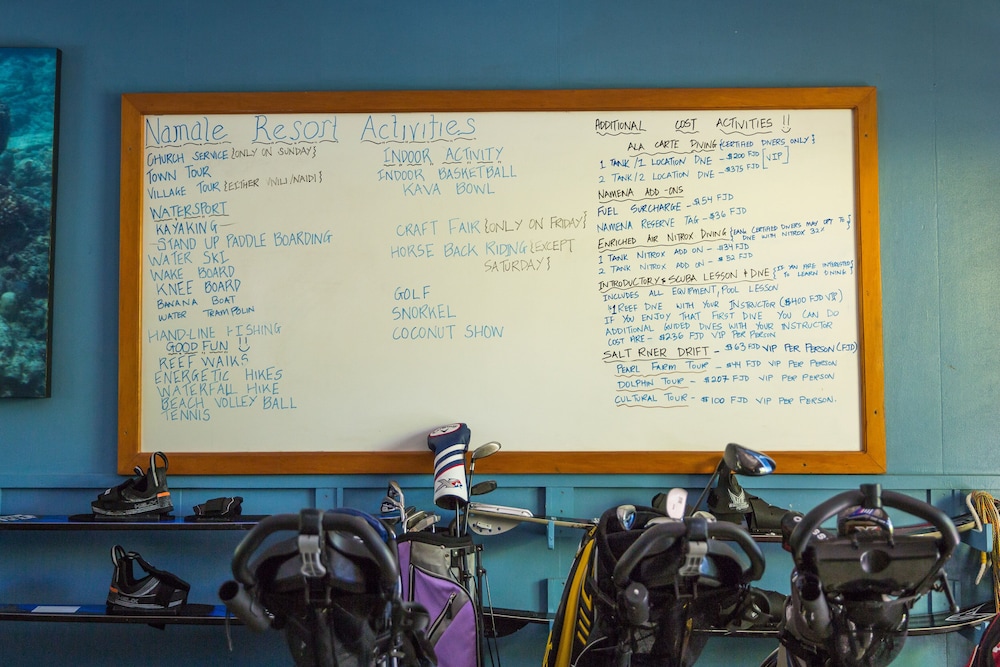 Namale Resort Activities
CHURCH SERVICE {ONLY ON SUNDAY}
TOWN TOUR
VILLAGE TOUR {EITHER VIVILI/NAIDI}
WATERSPORT
KAYAKING
STAND UP PADDLE BOARDING
WATER SKI
WAKE BOARD
KNEE BOARD
BANANA BOAT
WATER TRAMPOLIN
HAND-LINE FISHING
GOOD FUN !!
REEF WALKS
ENERGETIC HIKES
WATERFALL HIKE
BEACH VOLLEY BALL
TENNIS
INDOOR ACTIVITY
INDOOR BASKETBALL
KAVA BOWL
CRAFT FAIR {ONLY ON FRIDAY}
HORSE BACK RIDING {EXCEPT
SATURDAY}
GOLF
SNORKEL
COCONUT SHOW
ADDITIONAL COST ACTIVITIES !!
ALA CARTE DIVING {CERTIFIED DIVERS ONLY}
1 TANK/1 LOCATION DIVE - $200 FJD [VIP]
2 TANK/2 LOCATION DIVE - $375 FJD
NAMENA ADD-ONS
FUEL SURCHARGE - $154 FJD
NAMENA RESERVE TAG - $36 FJD
ENRICHED AIR NITROX DIVING {EANx CERTIFIED DIVERS MAY OPT TO
DIVE WITH NITROX 32%}
1 TANK NITROX ADD ON - $34 FJD
2 TANK NITROX ADD ON - $52 FJD
INTRODUCTORY SCUBA LESSON + DIVE {IF YOU ARE INTERESTED
TO LEARN DIVING}
INCLUDES ALL EQUIPMENT, POOL LESSON
1 REEF DIVE WITH YOUR INSTRUCTOR ($400 FJD VIP)
IF YOU ENJOY THAT FIRST DIVE YOU CAN DO
ADDITIONAL GUIDED DIVES WITH YOUR INSTRUCTOR
COST ARE - $236 FJD VIP PER PERSON
SALT RIVER DRIFT - $63 FJD VIP PER PERSON (FJD)
PEARL FARM TOUR - $44 FJD VIP PER PERSON
DOLPHIN TOUR - $207 FJD VIP PER PERSON
CULTURAL TOUR - $100 FJD VIP PER PERSON.